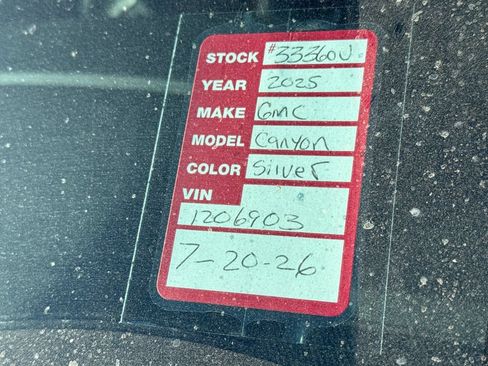 STOCK #33360U
YEAR 2025
MAKE GMC
MODEL Canyon
COLOR Silver
VIN
1206903
7-20-26